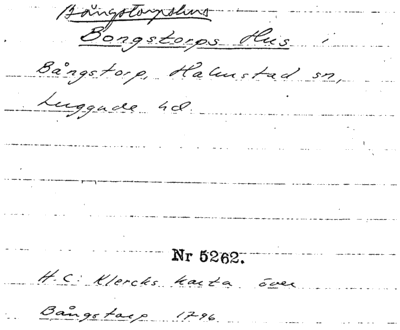 Bångstorpshus
Bongstorps Hus i
Bångstorp, Halmstad sn,
Luggude hd.
Nr 5262.
H.C. Klercks karta över
Bångstorp 1796